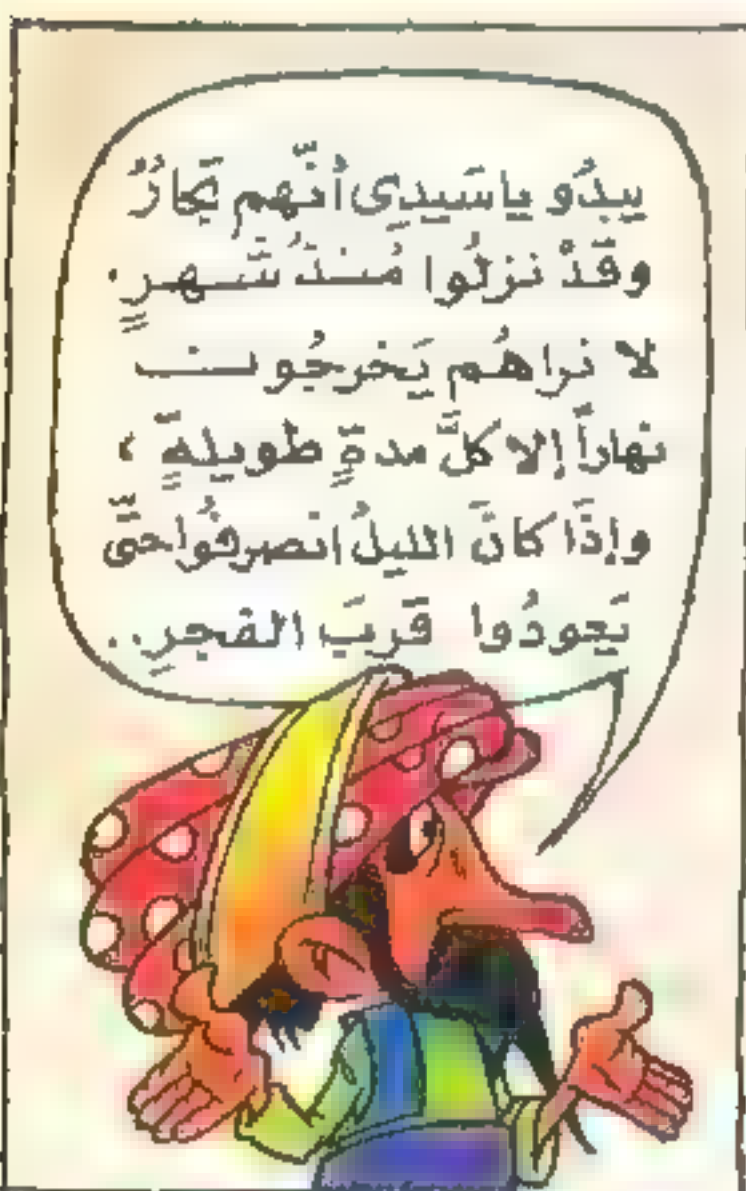 يبدُو ياسَيدِى أنّهم تجارٌ
وقَدْ نزلُوا مُنذُ شَهرٍ،
لا نراهُم يَخرجُون
نهاراً إلا كلَّ مدةٍ طويلةٍ ،
وإذَا كانَ الليلُ انصرفُوا حتَّى
يَعودُوا قربَ الفجرِ..